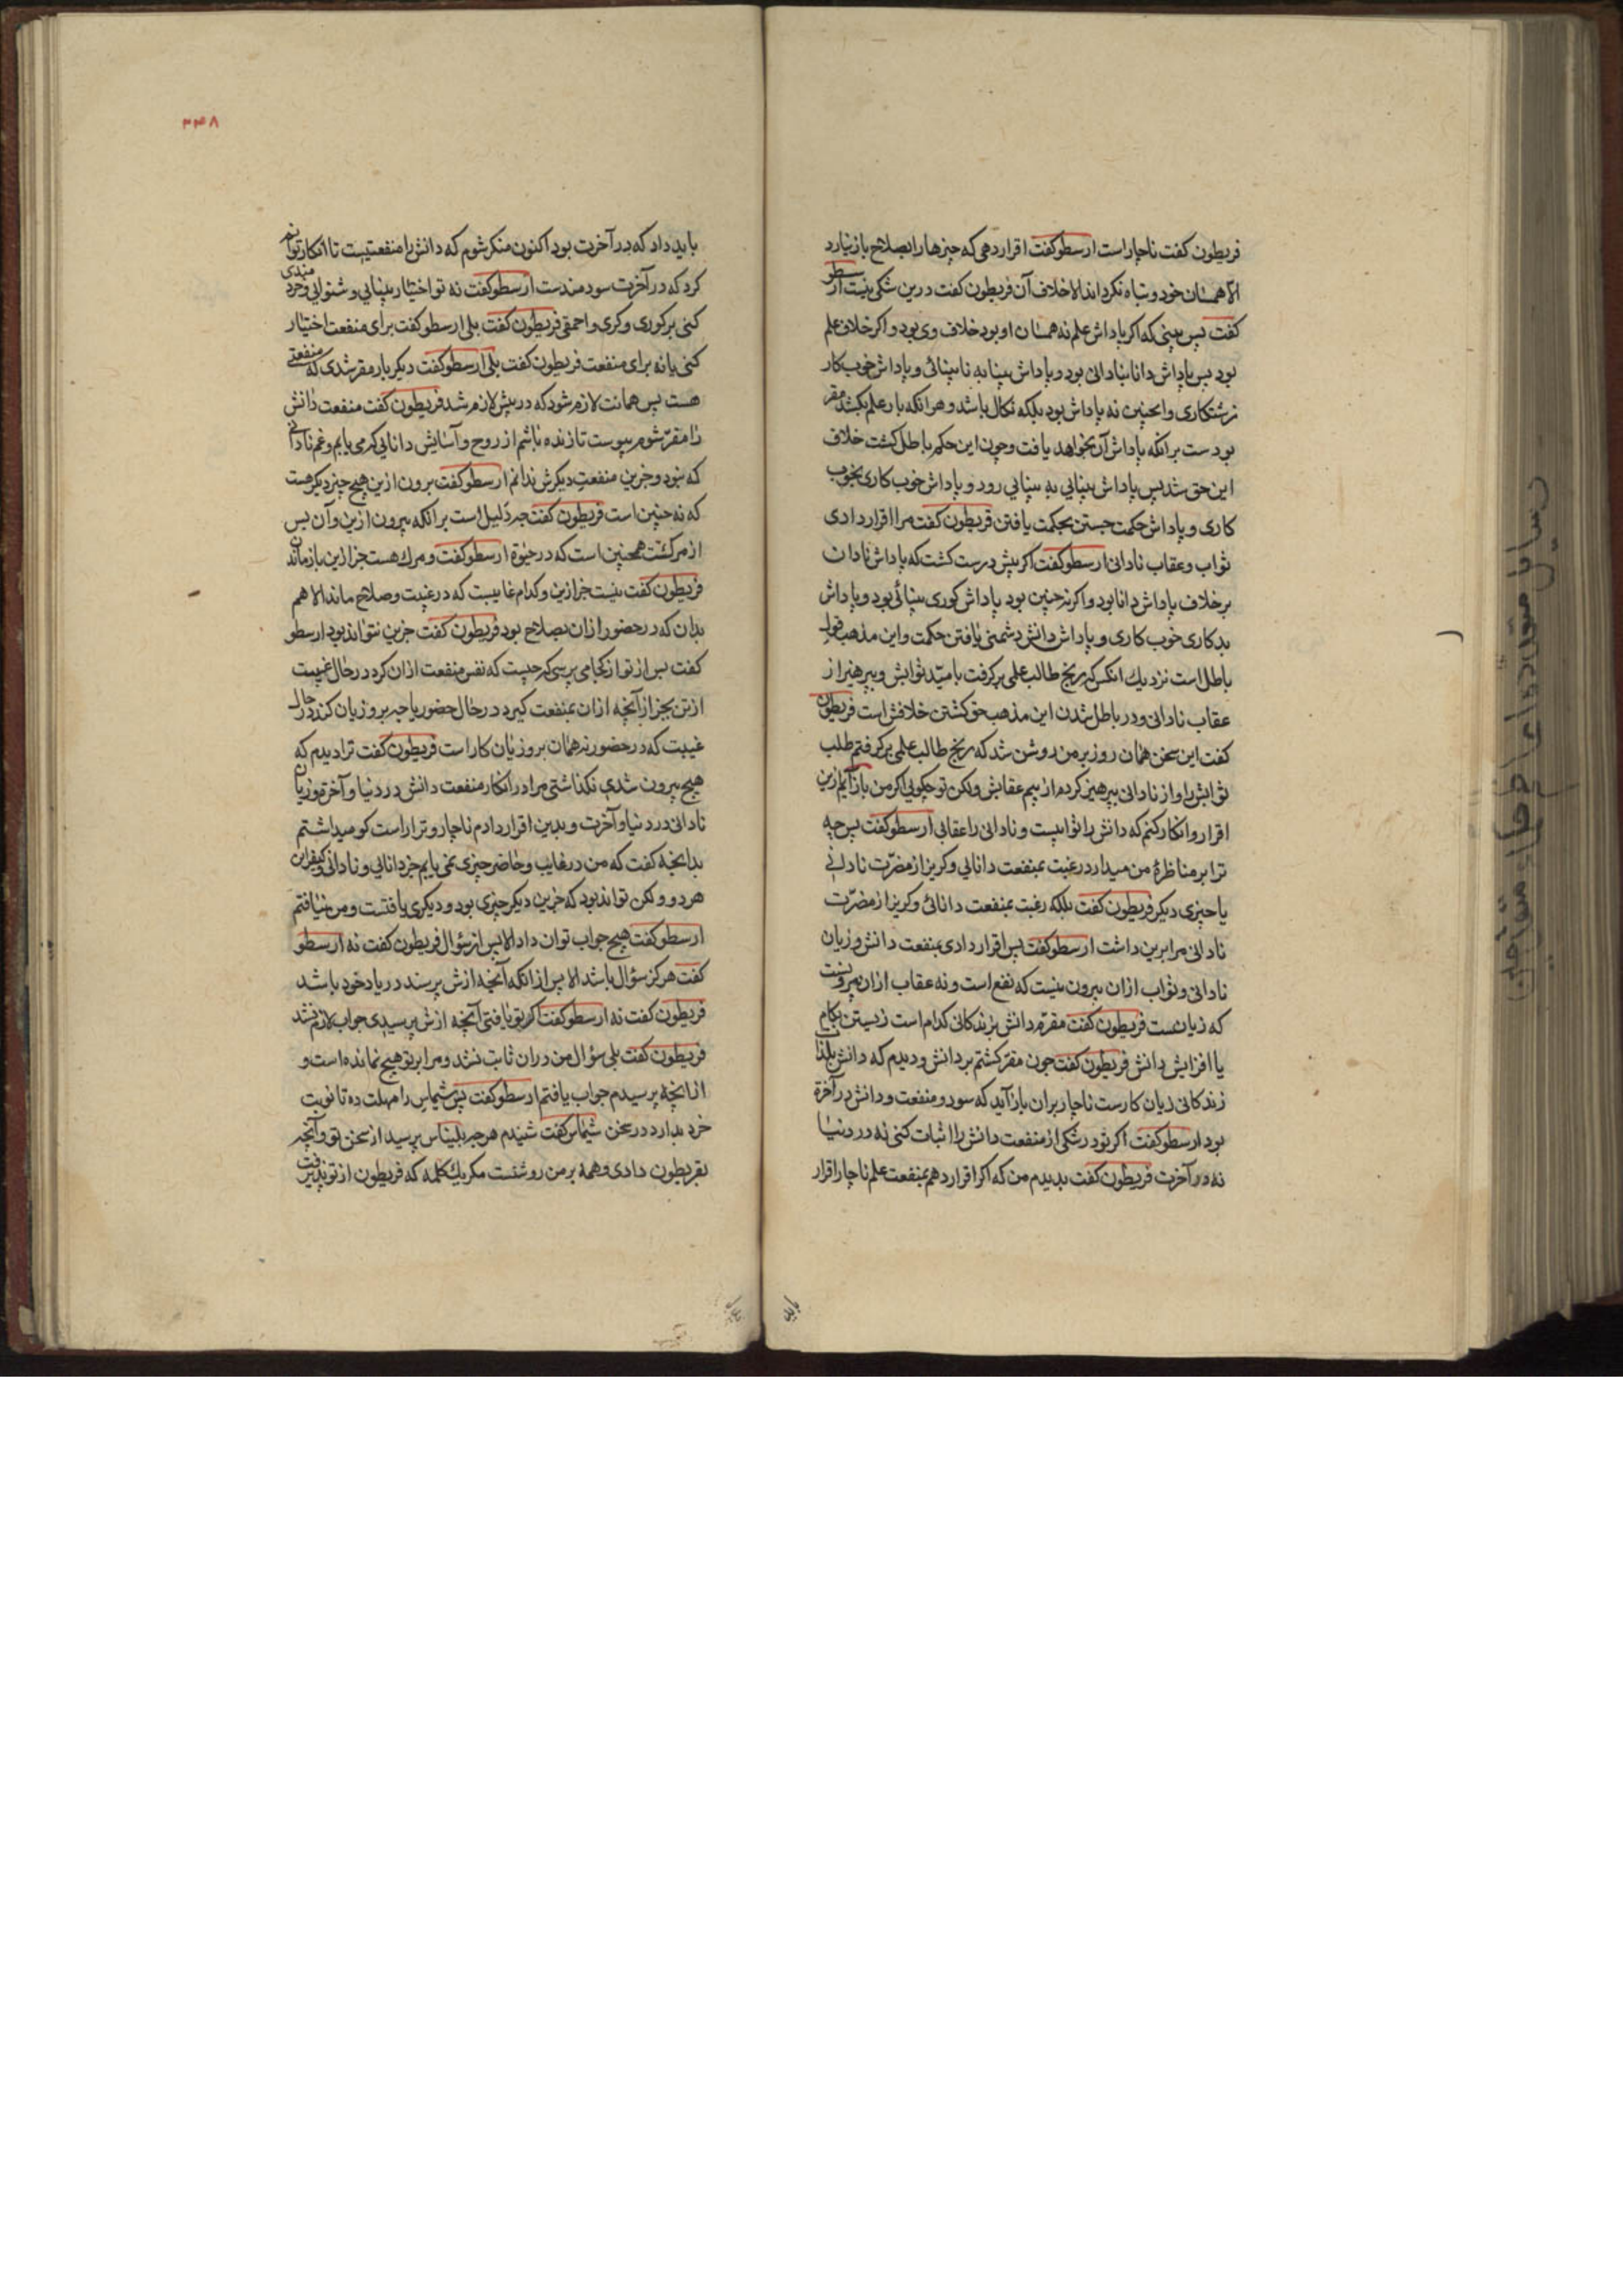 قریطون کفت ناچار است ارسطو کفت اقرار دهی که چیزها را بصلاح باز نیارد
الا همسان خود و تباه نکرداند الا خلاف آن قریطون کفت درین شکی نیست ارسطو
کفت پس بینی که اکر پاداش علم نه همسان او بود خلاف وی بود و اکر خلاف علم
بود پس پاداش دانا بنادانی بود و پاداش بینا به نابینائی و پاداش خوب کار
زشتکاری و اینچنین نه پاداش بود بلکه نکال باشد و هر انکه بار علم بکشد مقر
بودست برانکه پاداش آن بخواهد یافت و چون این حکم باطل کشت خلاف
این حق شد پس پاداش بینایی به بینایی رود و پاداش خوب کاری بخوب
کاری و پاداش حکمت جستن بحکمت یافتن قریطون کفت مرا اقرار دادی
ثواب و عقاب نادانی ارسطو کفت اکر پیش درست کشت که پاداش نادان
برخلاف پاداش دانا بود و اکر نه چنین بود پاداش کوری بینائی بود و پاداش
بدکاری خوب کاری و پاداش دانش دشمنی یافتن حکمت و این مذهب قول
باطل است نزدیك انکس که رنج طالب علمی برکرفت بامید ثوابش و بپرهیز از
عقاب نادانی و در باطل شدن این مذهب حق کشتن خلافش است قریطون
کفت این سخن همان روز بر من روشن شد که رنج طالب علمی برکرفتم طلب
ثوابش را و از نادانی بپرهیز کردم از بیم عقابش ولکن تو چکویی اکر من باز آیم ازین
اقرار و انکار کنم که دانش را ثوابیست و نادانی را عقابی ارسطو کفت پس چه
ترا بر مناظرهٔ من میدارد رغبت بمنفعت دانایی و کریز از مضرت نادانی
یا چیزی دیکر قریطون کفت بلکه رغبت بمنفعت دانائی و کریز از مضرت
نادانی مرا برین داشت ارسطو کفت پس اقرار دادی بمنفعت دانش و زیان
نادانی و ثواب ازان بیرون نیست که نفع است و نه عقاب ازان بیرونست
که زیانست قریطون کفت مقرم دانش بزندکانی کدام است زیستن بکام
یا افزایش دانش قریطون کفت چون مقر کشتم بر دانش و دیدم که دانش بلذات
زندکانی زیان کارست ناچار بران باز آید که سود و منفعت و دانش در آخرة
بود ارسطو کفت اکر تو در شکی از منفعت دانش را اثبات کنی نه در دنیا
نه در آخرت قریطون کفت بدیدم من که اکر اقرار دهم بمنفعت علم ناچار اقرار
باید
۳۴۸
باید داد که در آخرت بود اکنون منکر شوم که دانش را منفعتیست تا انکار توانم
کرد که در آخرت سودمندست ارسطو کفت نه تو اختیار بینایی و شنوایی و خردمندی
کنی بر کوری و کری و احمقی قریطون کفت بلی ارسطو کفت برای منفعت اختیار
کنی یا نه برای منفعت قریطون کفت بلی ارسطو کفت دیکر بار مقر شدی که منفعتی
هست پس همانت لازم شود که در پیش لازم شد قریطون کفت منفعت دانش
را مقر شوم پیوست تا زنده باشم از روح و آسایش دانایی که می یابم و غم نادانی
که نبود و جزین منفعت دیکرش ندانم ارسطو کفت برون ازین هیچ چیز دیکر هست
که نه چنین است قریطون کفت چه دلیل است برانکه بیرون ازین و آن پس
از مرکست همچنین است که در حیوة ارسطو کفت و مرك هست جز ازین بازماندن
قریطون کفت نیست جز ازین و کدام غایبست که در غیبت و صلاح ماند الا هم
بدان که در حضور ازان بصلاح بود قریطون کفت جزین نتواند بود ارسطو
کفت پس از تو از کجا می پرسی که چیست که نفس منفعت ازان کرد در حال غیبت
از تن بجز از آنچه ازان بمنفعت کیرد در حال حضور یا چه برو زیان کند در حال
غیبت که در حضور نه همان برو زیان کار است قریطون کفت ترا دیدم که
هیچ بیرون شدی نکذاشتی مرا در انکار منفعت دانش در دنیا و آخرة و زیان
نادانی در دنیا و آخرت و بدین اقرار دادم ناچار و ترا راست کو میداشتم
بدانچه کفت که من در غایب و حاضر چیزی نمی یابم جز دانایی و نادانی و کیفر این
هر دو و لکن تواند بود که جزین دیکر چیزی بود و دیکری یافتست و من نیافتم
ارسطو کفت هیچ جواب توان داد الا پس از سؤال قریطون کفت نه ارسطو
کفت هرکز سؤال باشد الا پس از انکه آنچه ازش پرسند در یاد خود باشد
قریطون کفت نه ارسطو کفت اکر تو یافتی آنچه ازش پرسیدی جواب لازم شد
قریطون کفت بلی سؤال من دران ثابت نشد و مرا بر تو هیچ نمانده است و
ازانچه پرسیدم جواب یافتم ارسطو کفت پس شیماس را مهلت ده تا نوبت
خرد بدارد در سخن شیماس کفت شنیدم هرچه بلیناس پرسید از سخن تو و آنچه
بقریطون دادی و همه بر من روشنست مکر یك کلمه که قریطون از تو پذیرفت